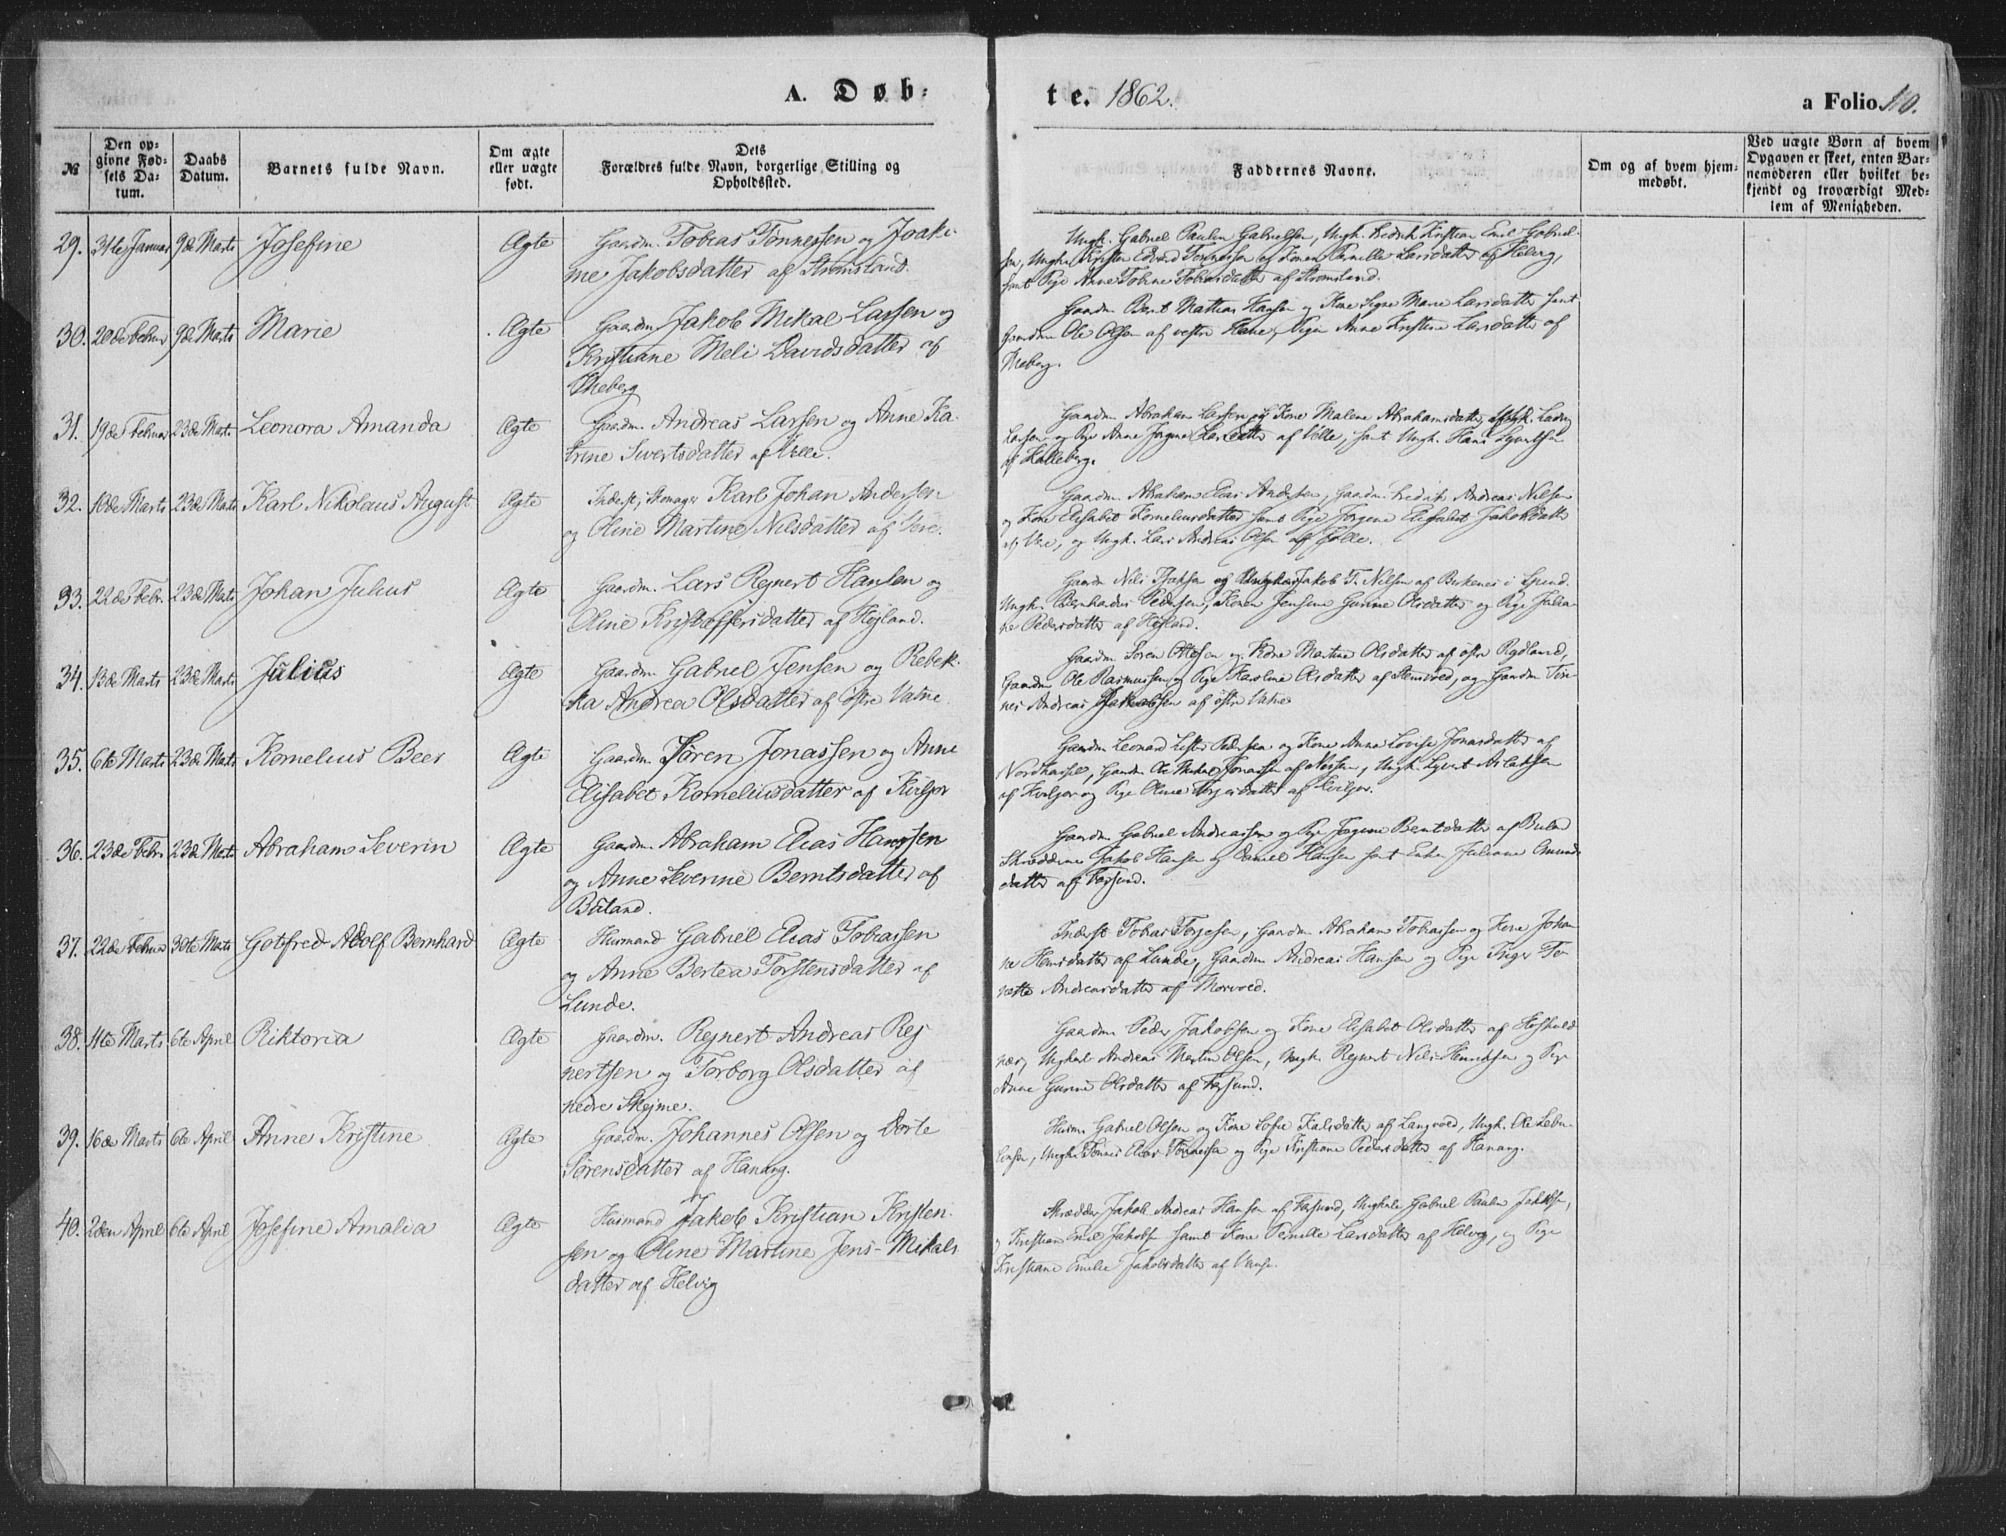 A. Døb-
te. 1862.
a Folio 110.
№
Den op-
givne Fød-
sels Da-
tum.
Daabs
Datum.
Barnets fulde Navn.
Om ægte
eller uægte
født.
Dets
Forældres fulde Navn, borgerlige Stilling og
Opholdssted.
Faddernes Navne.
Om og af hvem hjem-
medøbt.
Ved uægte Børn af hvem
Opgaven er skeet, enten Bar-
nemoderen eller hvilket be-
kjendt og troværdigt Med-
lem af Menigheden.
29. 31te Januar 9de Marts Josefine Ægte Gaardm. Tobias Tønnessen og Joaki-
me Jakobsdatter af Strømsland.
Ungk. Gabriel Paulin Gabrielsen, Ungk. Fredrik Kristian Emil Gabriel-
sen, Ungk. Kristen Edvard Tønnessen og Konen Pernille Larsdatter af Helvig,
samt Pige Anne Tobine Tobiasdatter af Strømsland.
30. 20de Februar 9de Marts Marie Ægte Gaardm. Jakob Mikal Larsen og
Kristiane Meli Davidsdatter af
Huseby
Gaardm. Bent Mathias Hansen og Kone Signe Marie Larsdatter samt
Gaardm. Ole Olsen af vestre Hauge, Pige Anne Kristine Larsdatter af
31. 19de Februar 23de Marts Leonora Amanda Ægte Gaardm. Andreas Larsen og Anne Ka-
trine Sivertsdatter af Velle.
Gaardm. Abraham Larsen og Kone Malene Abrahamsdatter, Ungk. Ludvig
Larsen og Pige Anne Jørgine Larsdatter af Velle, samt Ungk. Hans Syvertsen
af Kalleberg.
32. 10de Marts 23de Marts Karl Nikolaus August Ægte Inderst, Karl Johan Andersen
og Oline Martine Nilsdatter af Vere.
Gaardm. Abraham Elias Andersen, Gaardm. Andreas Nilsen
og Kone Elisabet Korneliusdatter samt Pige Jørgine Elisabet Jakobsdatter
af Vere, og Ungk. Lars Andreas Olsen af Jølle.
33. 22de Febr. 23de Marts Johan Julius Ægte Gaardm. Lars Rejnert Hansen og
Oline Kristoffersdatter af Højland.
Gaardm. Nils Isaksen og Ungkar Jakob T. Nilsen af Birkenes i Spind.
Ungk. Bernhardus Pedersen, Konen Jensine Gurine Olsdatter og Pige Julia-
ne Pedersdatter af Højland.
34. 13de Marts 23de Marts Julius Ægte Gaardm. Gabriel Jensen og Rebek-
ka Andrea Olsdatter af østre Vatne
Gaardm. Søren Ottesen og Kone Martine Olsdatter af østre Rødland,
Gaardm. Ole Rasmussen og Pige Karoline Olsdatter af Stensvoed, og Gaardm. Tøn-
nes Andreas Jakobsen af østre Vatne
35. 6te Marts 23de Marts Kornelius Beer Ægte Gaardm. Søren Jonassen og Anne
Elisabet Korneliusdatter af Kviljor
Gaardm. Leonard Lister Pedersen og Kone Anne Lovise Jonasdatter af
Nordhassel, Gaardm. Ole Mikal Jonassen af Nessen, Ungk. Syvert Nilsen
af Kviljor og Pige Oline Torjersdatter af Kviljor.
36. 23de Febr. 23de Marts Abraham Severin Ægte Gaardm. Abraham Elias Hansen
og Anne Severine Berntsdatter af
Buland.
Gaardm. Gabriel Andreassen og Pige Jøgine Bentsdatter af Buland
Skrædderne Jakob Hansen og Daniel Hansen samt Enke Juliane Omunds-
datter af Farsund.
37. 22de Februar 30te Marts Gotfred Adolf Bernhard Ægte Husmand Gabriel Elias Tobiassen
og Anne Bertea Torstensdatter af
Lunde.
Inderst Tobias Terjesen, Gaardm. Abraham Tobiassen og Kone Johan-
ne Hansdatter af Lunde, Gaardm. Andreas Hansen og Pige Inger To-
nette Andreasdatter af Morvoed.
38. 4de Marts 6te April Viktoria Ægte Gaardm. Rejnert Andreas Rej-
nertsen og Torborg Olsdatter af
nedre Skejme.
Gaardm. Peder Jakobsen og Kone Elisabet Olsdatter af Høskuld-
nes, Ungkarl Andreas Martin Olsen, Ungk. Rejnert Nils Henriksen og Pige
Anne Gurine Olsdatter af Farsund.
39. 16de Marts 6te April Anne Kristine Ægte Gaardm. Johannes Olsen og Dorte
Sørensdatter af Hanang.
Husm. Gabriel Olsen og Kone Sofie Kalsdatter af Langvoed, Ungk. Ole
Ungk. Tønnes Elias Tønnessen og Pige Kristiane Pedersdatter af Hanang.
40. 2den April 6te April Josefine Amalia Ægte Husmand Jakob Kristian Kristen-
sen og Oline Martine Jens-Mikals-
datter af Helvig
Skrædder Jakob Andreas Hansen af Farsund, Ungkarle Gabriel Paulin Jakobsen,
og Kristian Emil Jakobsen samt Kone Pernille Larsdatter af Helvig, og Pige
Kristiane Emelie Jakobsdatter af Vanse.